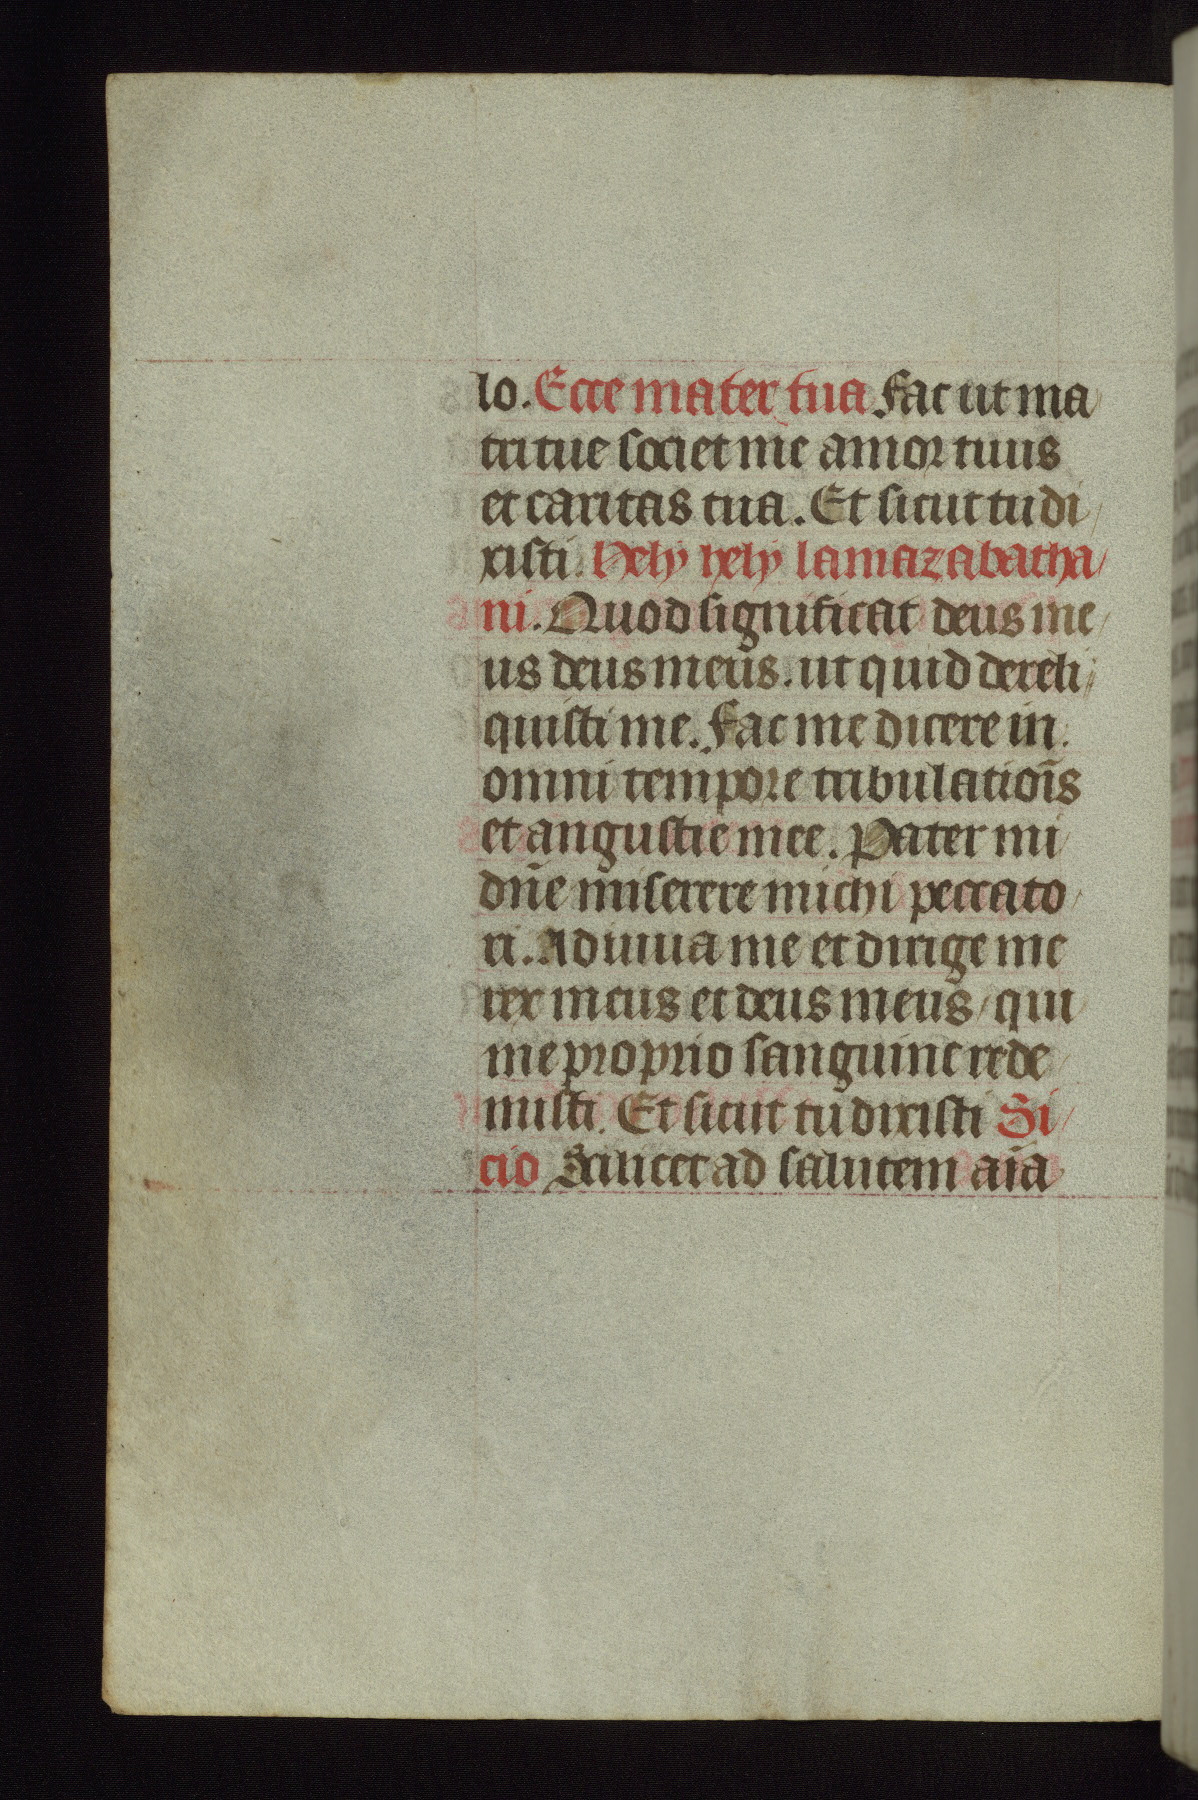 lo. Ecce mater tua Fac ut ma
tri tue societ me amor tuus
et caritas tua. Et sicut tu di
xisti. Hely hely lamazabatha
ni. Quod significat deus me
us deus meus. ut quid dereli
quisti me. Fac me dicere in
omni tempore tribulatiōis
et angustie mee. Pater mi
dn̄e miserere michi peccato
ri. Adiuua me et dirige me
rex meus et deus meus / qui
me proprio sanguine rede
misti. Et sicut tu dixisti Si
cio Scilicet ad salutem aīa